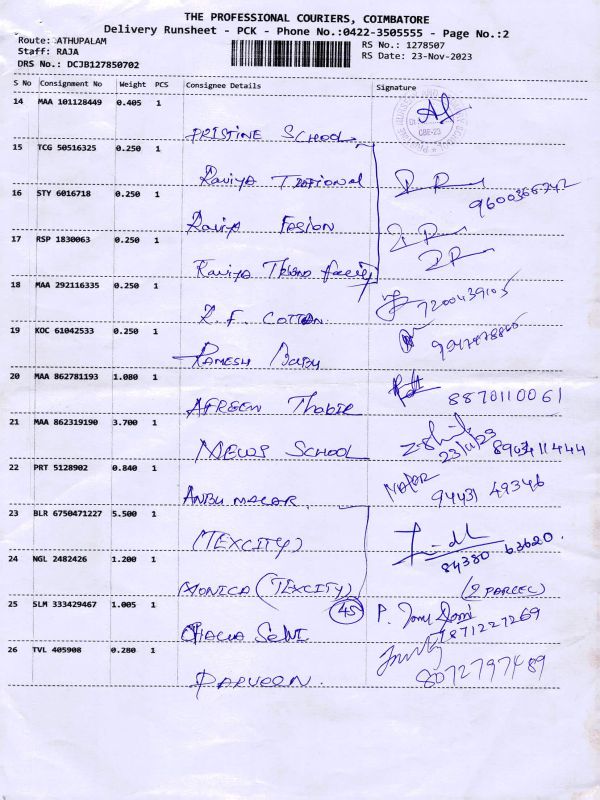 THE PROFESSIONAL COURIERS, COIMBATORE
Delivery Runsheet - PCK - Phone No.:0422-3505555 - Page No.:2
Route: ATHUPALAM
Staff: RAJA
DRS No.: DCJB127850702
RS No.: 1278507
RS Date: 23-Nov-2023
S No Consignment No Weight PCS Consignee Details Signature
14 MAA 101128449 0.405 1
PRISTINE SCHOOL
15 TCG 50516325 0.250 1
16 STY 6016718 0.250 1
9600366742
17 RSP 1830063 0.250 1
18 MAA 292116335 0.250 1
COTTON
19 KOC 61042533 0.250 1
RAMESH BABU
20 MAA 862781193 1.080 1
AFREEN
8870110061
21 MAA 862319190 3.700 1
SCHOOL
23/11/23 8903411444
22 PRT 5128902 0.840 1
ANBU MALAR
94431 49346
23 BLR 6750471227 5.500 1
(TEXCITY)
84380 63620
24 NGL 2482426 1.200 1
MONICA (TEXCITY)
(2 PARCEL)
25 SLM 333429467 1.005 1
45
7871227269
26 TVL 405908 0.280 1
8072797489